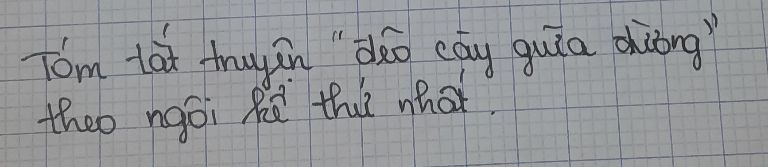 Tóm tắt truyện "đẽo cày giữa đường"
theo ngôi kể thứ nhất.